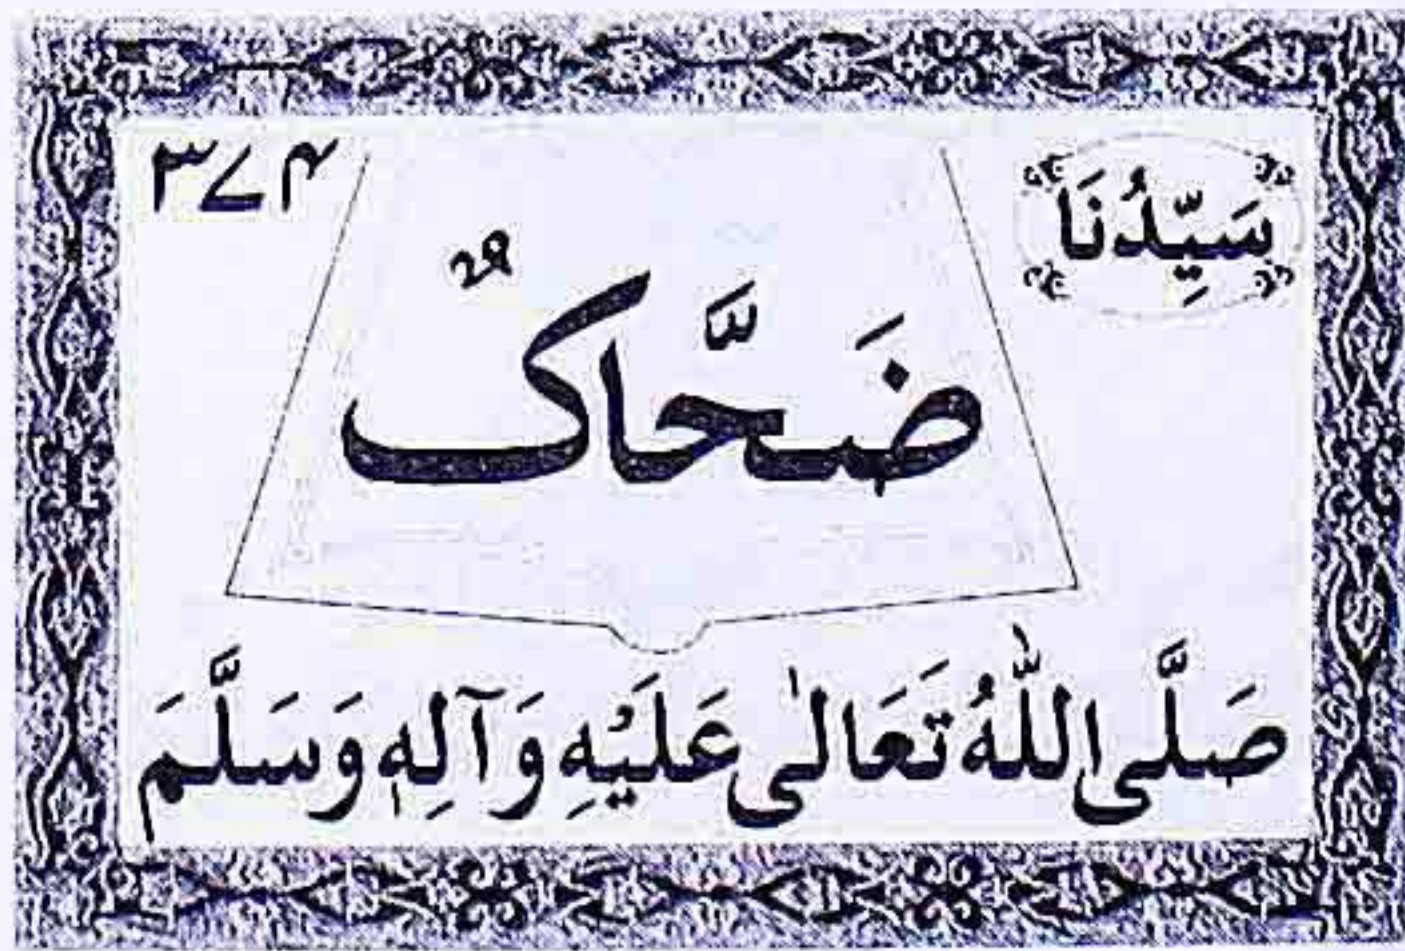 سَيِّدُنَا
۳۷۴
ضَحَّاكٌ
صَلَّى اللّٰهُ تَعَالٰى عَلَيْهِ وَآلِهٖ وَسَلَّمَ